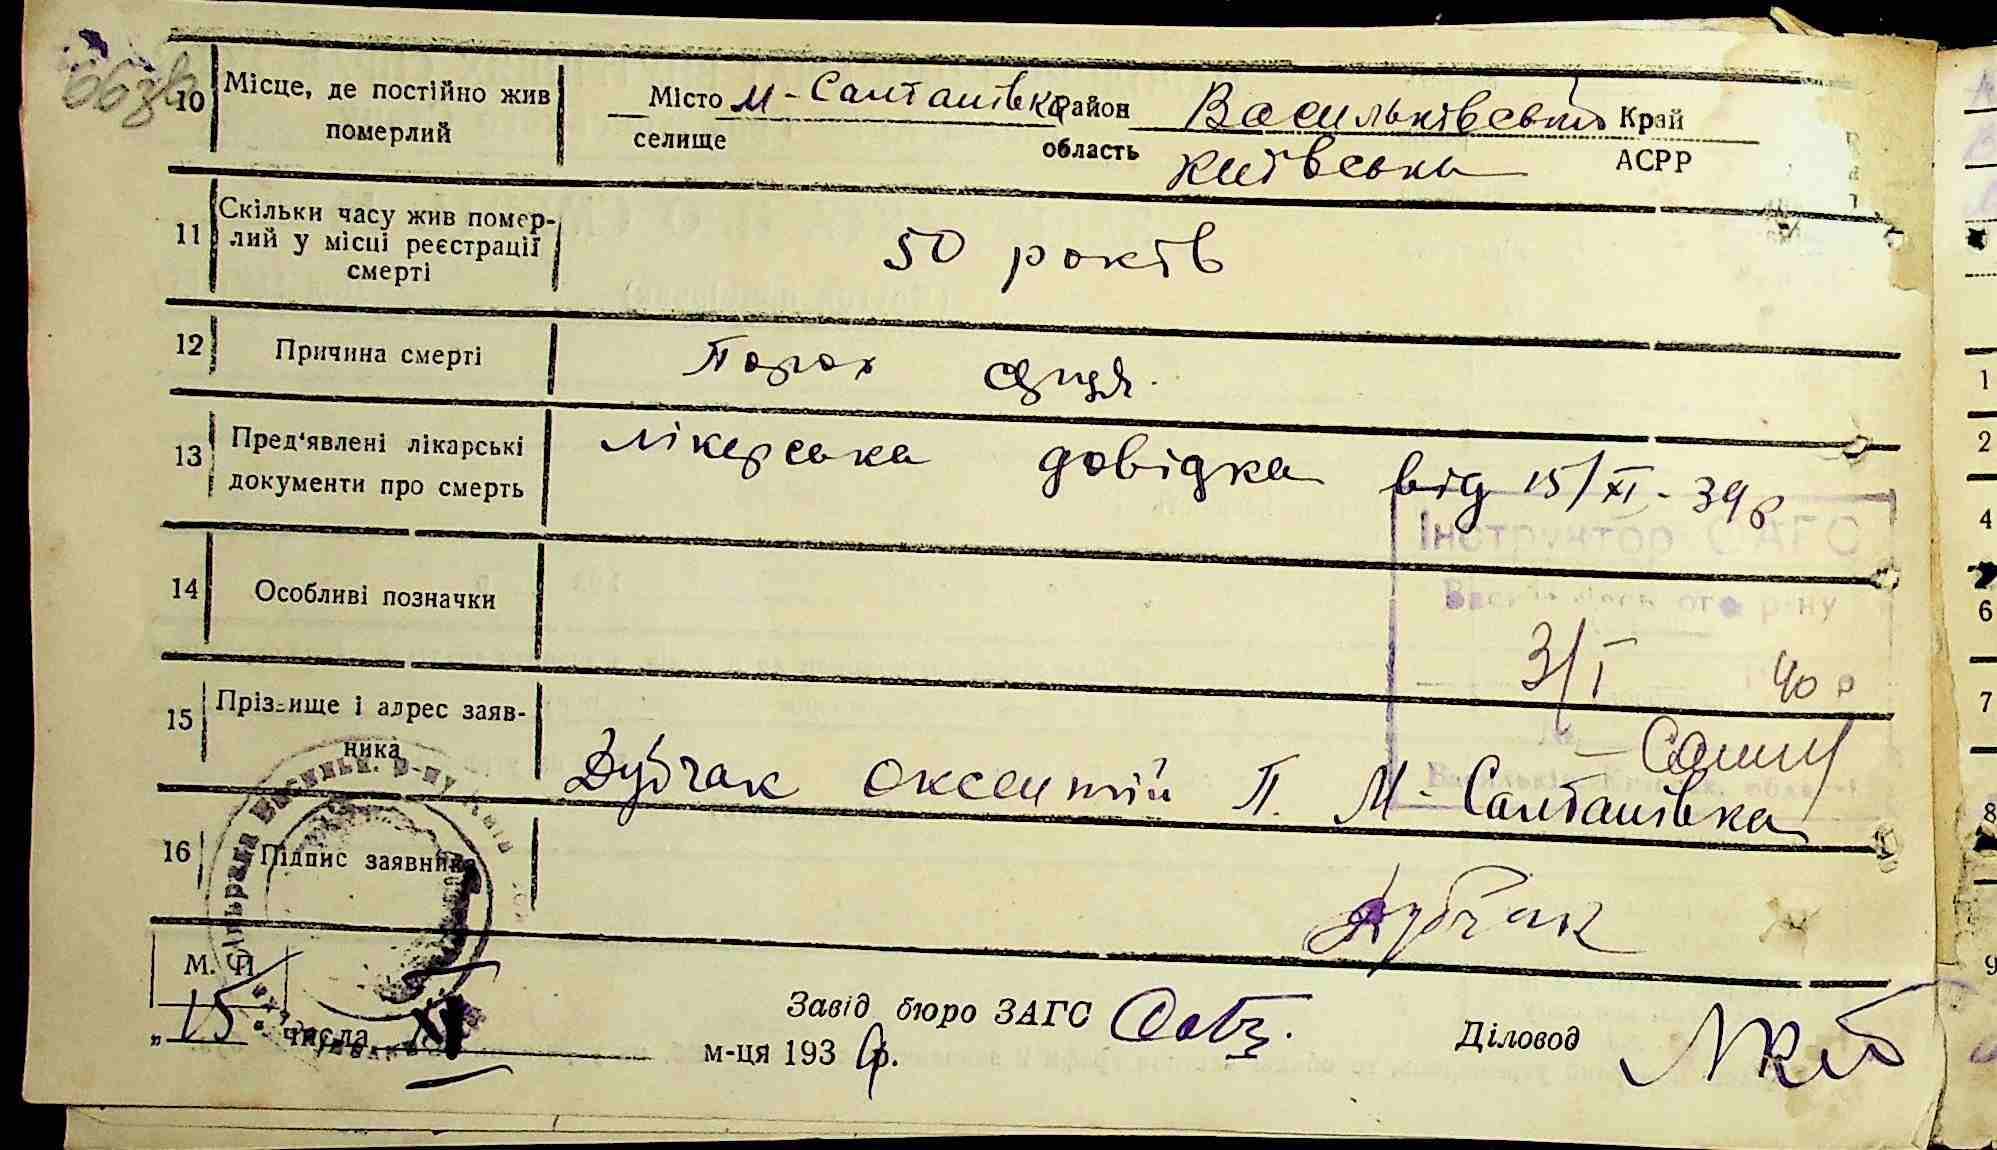 10 Місце, де постійно жив померлий
Місто М-Салтанівка район Васильківський Край
селище область Київська АСРР
11 Скільки часу жив помер-
лий у місці реєстрації
смерті
50 років
12 Причина смерті
Порок серця.
13 Пред'явлені лікарські
документи про смерть
лікарська довідка від 15/XI-39 р
Інструктор ЗАГС
14 Особливі позначки
р-ну
3/I 40 р
15 Прізвище і адрес заяв-
ника
Дубчак Оксентій П. М-Салтанівка
16 Підпис заявника
Дубчак
М. П.
„15" числа XI м-ця 1939 р.
Завід бюро ЗАГС
Діловод
1
2
4
6
7
8
9